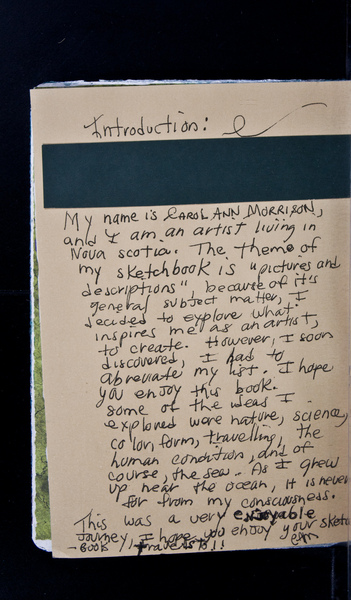 Introduction:
My name is CAROL ANN MORRISON,
and I am an artist living in
Nova scotia. The theme of
my sketchbook is "pictures and
descriptions", because of it's
general subject matter, I
decided to explore what
inspires me as an artist,
to create. However, I soon
discovered, I had to
abreviate my list. I hope
you enjoy this book.
some of the ideas I
explored were nature, science,
color, form, travelling, the
human condition, and of
course, the sea. As I grew
up near the ocean, it is never
far from my consciousness.
This was a very enjoyable
Journey, I hope you enjoy your sketch
-BOOK travels to!!